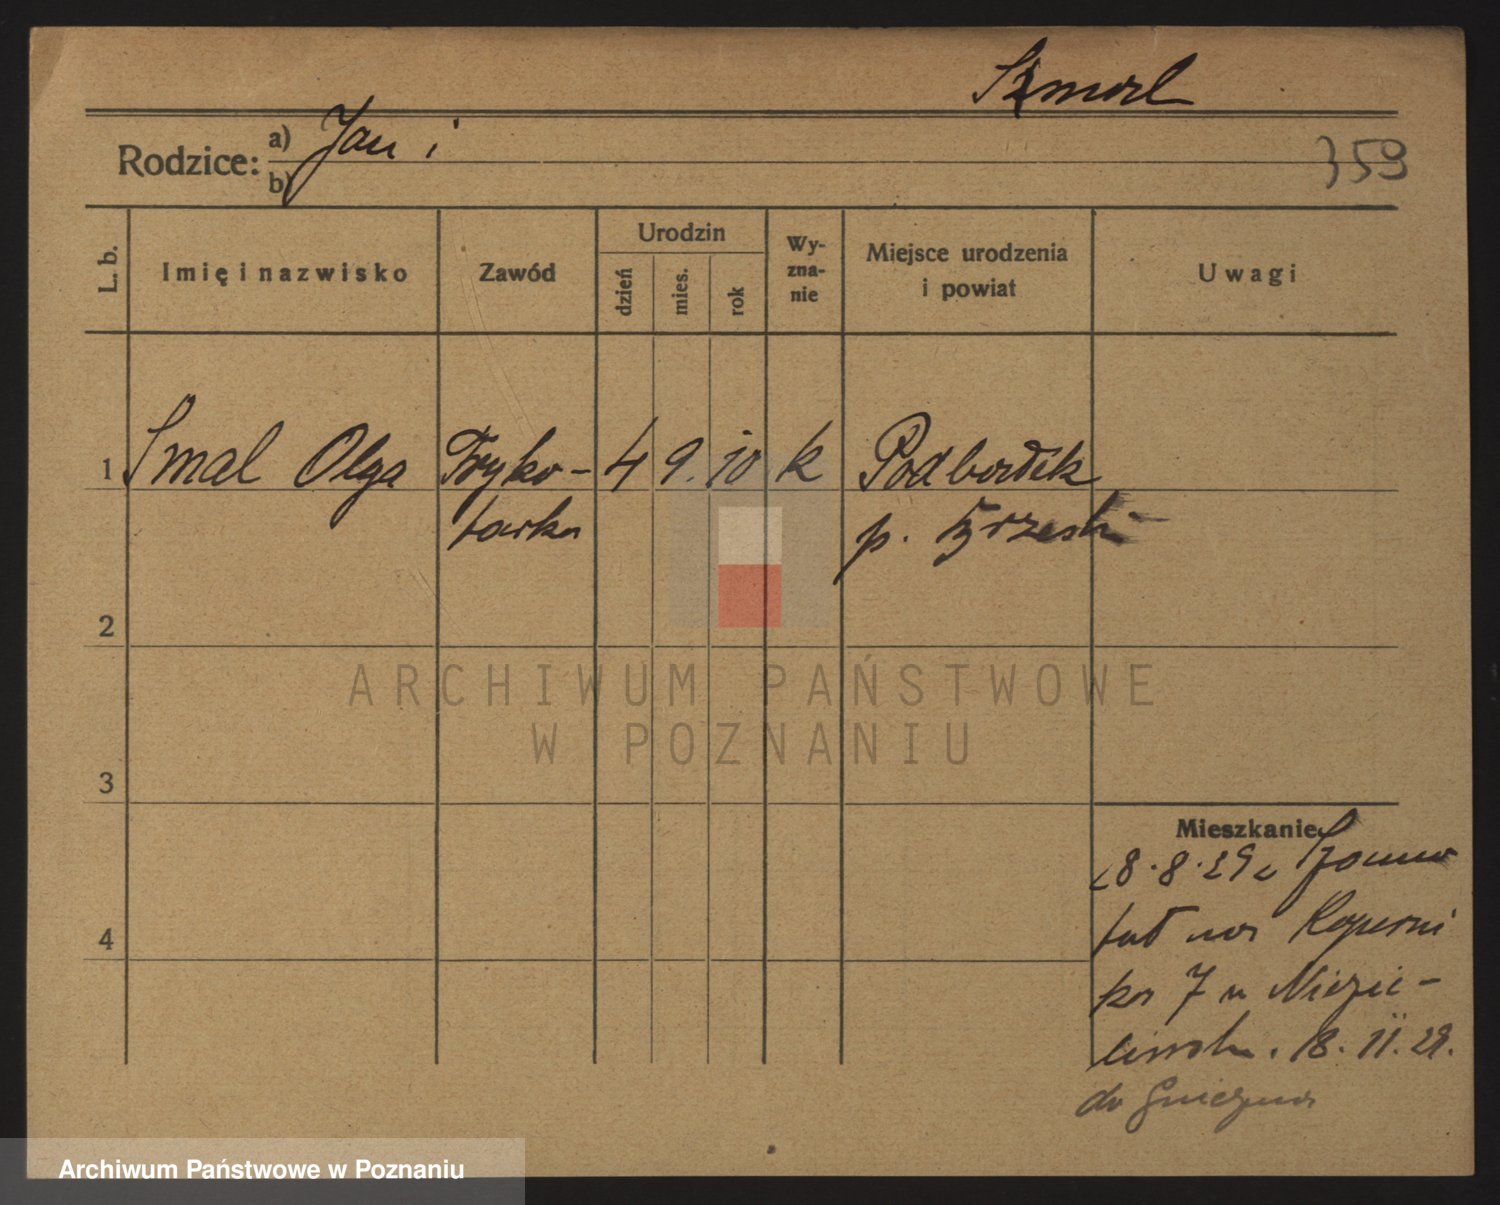 Szmal
Rodzice: a) Jan i
b)
359
L. b.
Imię i nazwisko
Zawód
Urodzin
dzień
mies.
rok
Wy-
zna-
nie
Miejsce urodzenia
i powiat
Uwagi
1 Smal Olga Tryko- 4 9. 10 k
tarka
p.
2
3
4
Mieszkanie
28.8.29
na Koperni
ka 7 u
18. 11. 29.
do Gniezna
ARCHIWUM PAŃSTWOWE
W POZNANIU
Archiwum Państwowe w Poznaniu